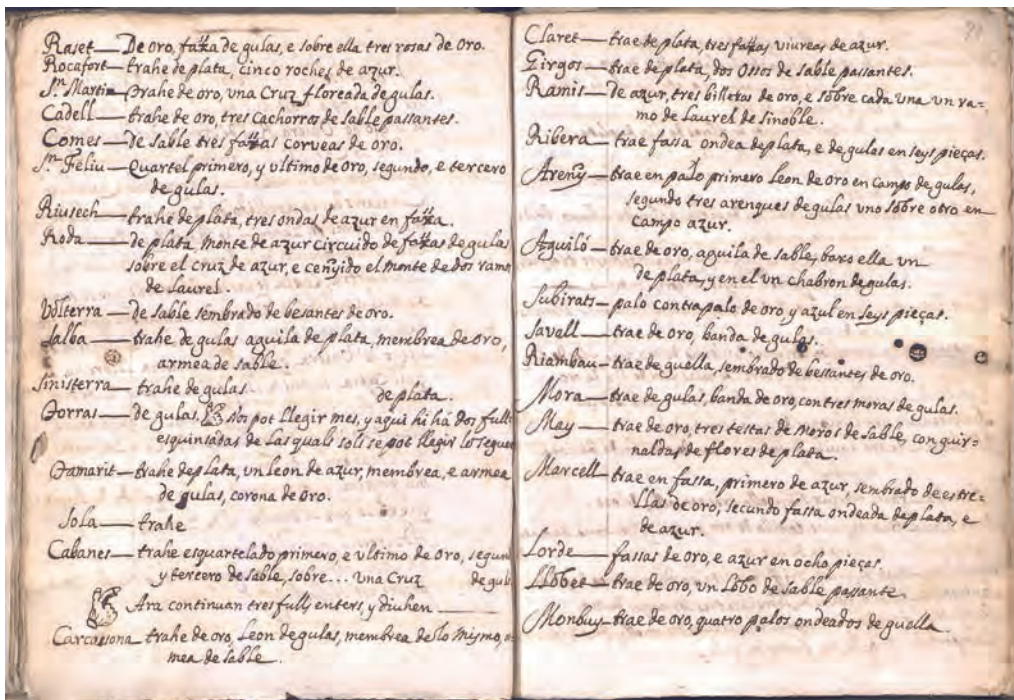 Raset — De oro, faxa de gulas, e sobre ella tres rosas de oro.
Rocafort — trahe de plata, cinco roches de azur.
S.n Martin — trahe de oro, una Cruz floreada de gulas.
Cadell — trahe de oro, tres cachorros de sable passantes.
Comes — de sable tres faxas corveas de oro.
S.n Feliu — Quartel primero, y ultimo de oro, segundo, e tercero
de gulas.
Riusech — trahe de plata, tres ondas de azur en faxa.
Roda — de plata monte de azur circuido de faxas de gulas
sobre el cruz de azur, e cenyido el monte de dos ramos
de Laurel.
Volterra — de sable sembrado de besantes de oro.
Salba — trahe de gulas aguila de plata, membrea de oro,
armea de sable.
Sinisterra — trahe de gulas de plata.
Torras — de gulas. Nos pot llegir mes, y aqui hi há dos fulls
esquinsadas de las quals sols se pot llegir lo seguen
Tamarit — trahe de plata, un leon de azur, membrea, e armea
de gulas, corona de oro.
Sola — trahe
Cabanes — trahe esquartelado primero, e ultimo de oro, segun
y tercero de sable, sobre... una Cruz de gul
Ara continuan tres fulls enters, y diuhen —
Carcassona — trahe de oro, Leon de gulas, membrea de lo mismo,
mea de sable.
Claret — trae de plata, tres faxas viureas de azur.
Girgos — trae de plata, dos Ossos de sable passantes.
Ramis — de azur, tres billetas de oro, e sobre cada una un ra=
mo de Laurel de Sinoble.
Ribera — trae fassa ondea de plata, e de gulas en seys pieças.
Areny — trae en palo primero Leon de oro en campo de gulas,
segundo tres arenques de gulas uno sobre otro en
campo azur.
Azguiló — trae de oro, aguila de sable, baxo ella un
de plata, y en el un chabron de gulas.
Subirats — palo contrapalo de oro, y azul en seys pieças.
Savall — trae de oro, banda de gulas.
Riambau — trae de guella, sembrado de bessantes de oro.
Mora — trae de gulas, banda de oro, con tres moras de gulas.
May — trae de oro, tres testas de Moros de sable, con guir=
naldas de flores de plata.
Marcell — trae en fassa, primero de azur, sembrado de estre=
llas de oro, secundo fassa ondeada de plata, e
de azur.
Lorde — fassas de oro, e azur en ocho pieças.
Llobet — trae de oro, un Lobo de sable passante.
Monbuy — trae de oro, quatro palos ondeados de guella.